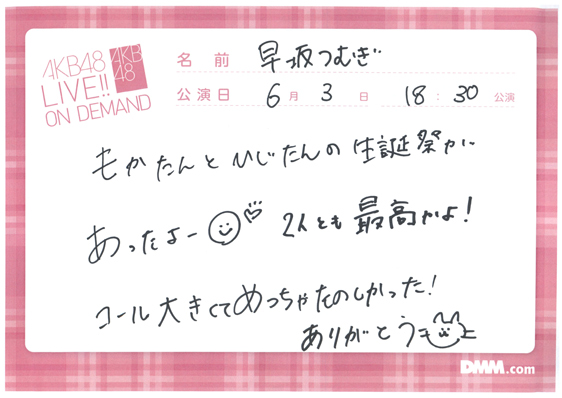 AKB48
LIVE!!
ON DEMAND
AKB
48
名前 早坂つむぎ
公演日 6月3日 18:30公演
もかたんとひじたんの生誕祭が
あったよー 2人とも最高かよ!
コール大きくてめっちゃたのしかった!
ありがとう
DMM.com